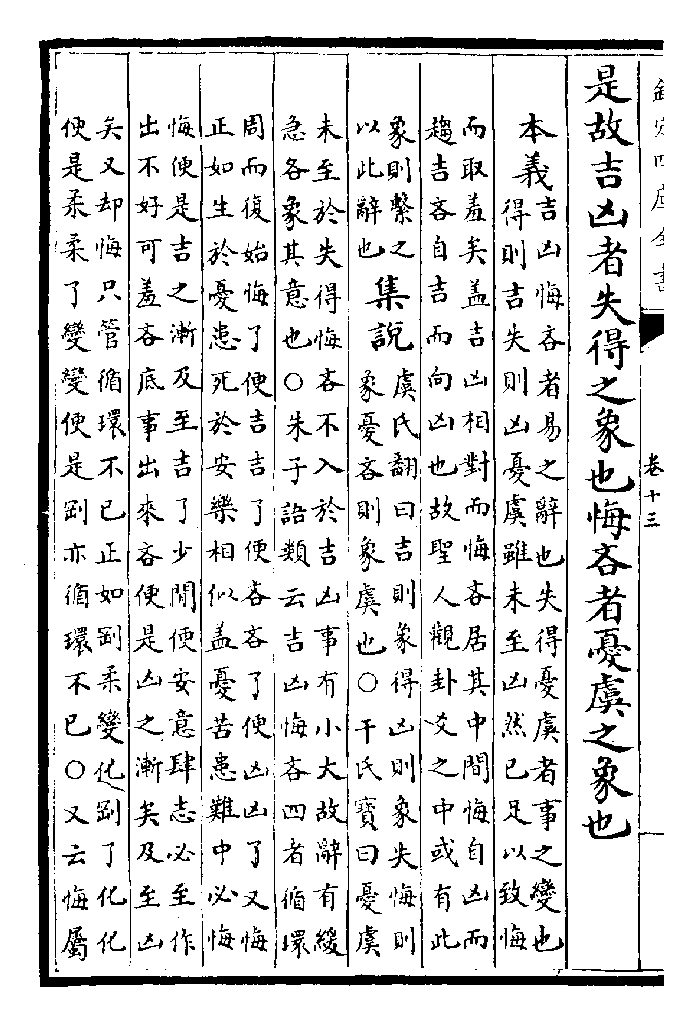 欽定四庫全書
卷十三
是故吉凶者失得之象也悔吝者憂虞之象也
本義
吉凶悔吝者易之辭也失得憂虞者事之變也
得則吉失則凶憂虞雖未至凶然已足以致悔
而取羞矣盖吉凶相對而悔吝居其中間悔自凶而
趨吉吝自吉而向凶也故聖人觀卦爻之中或有此
象則繫之
以此辭也
集說
虞氏翻曰吉則象得凶則象失悔則
象憂吝則象虞也○干氏寶曰憂虞
未至於失得悔吝不入於吉凶事有小大故辭有緩
急各象其意也○朱子語類云吉凶悔吝四者循環
周而復始悔了便吉吉了便吝吝了便凶凶了又悔
正如生於憂患死於安樂相似盖憂苦患難中必悔
悔便是吉之漸及至吉了少閒便安意肆志必至作
出不好可羞吝底事出來吝便是凶之漸矣及至凶
矣又却悔只管循環不已正如剛柔變化剛了化化
便是柔柔了變變便是剛亦循環不已○又云悔屬